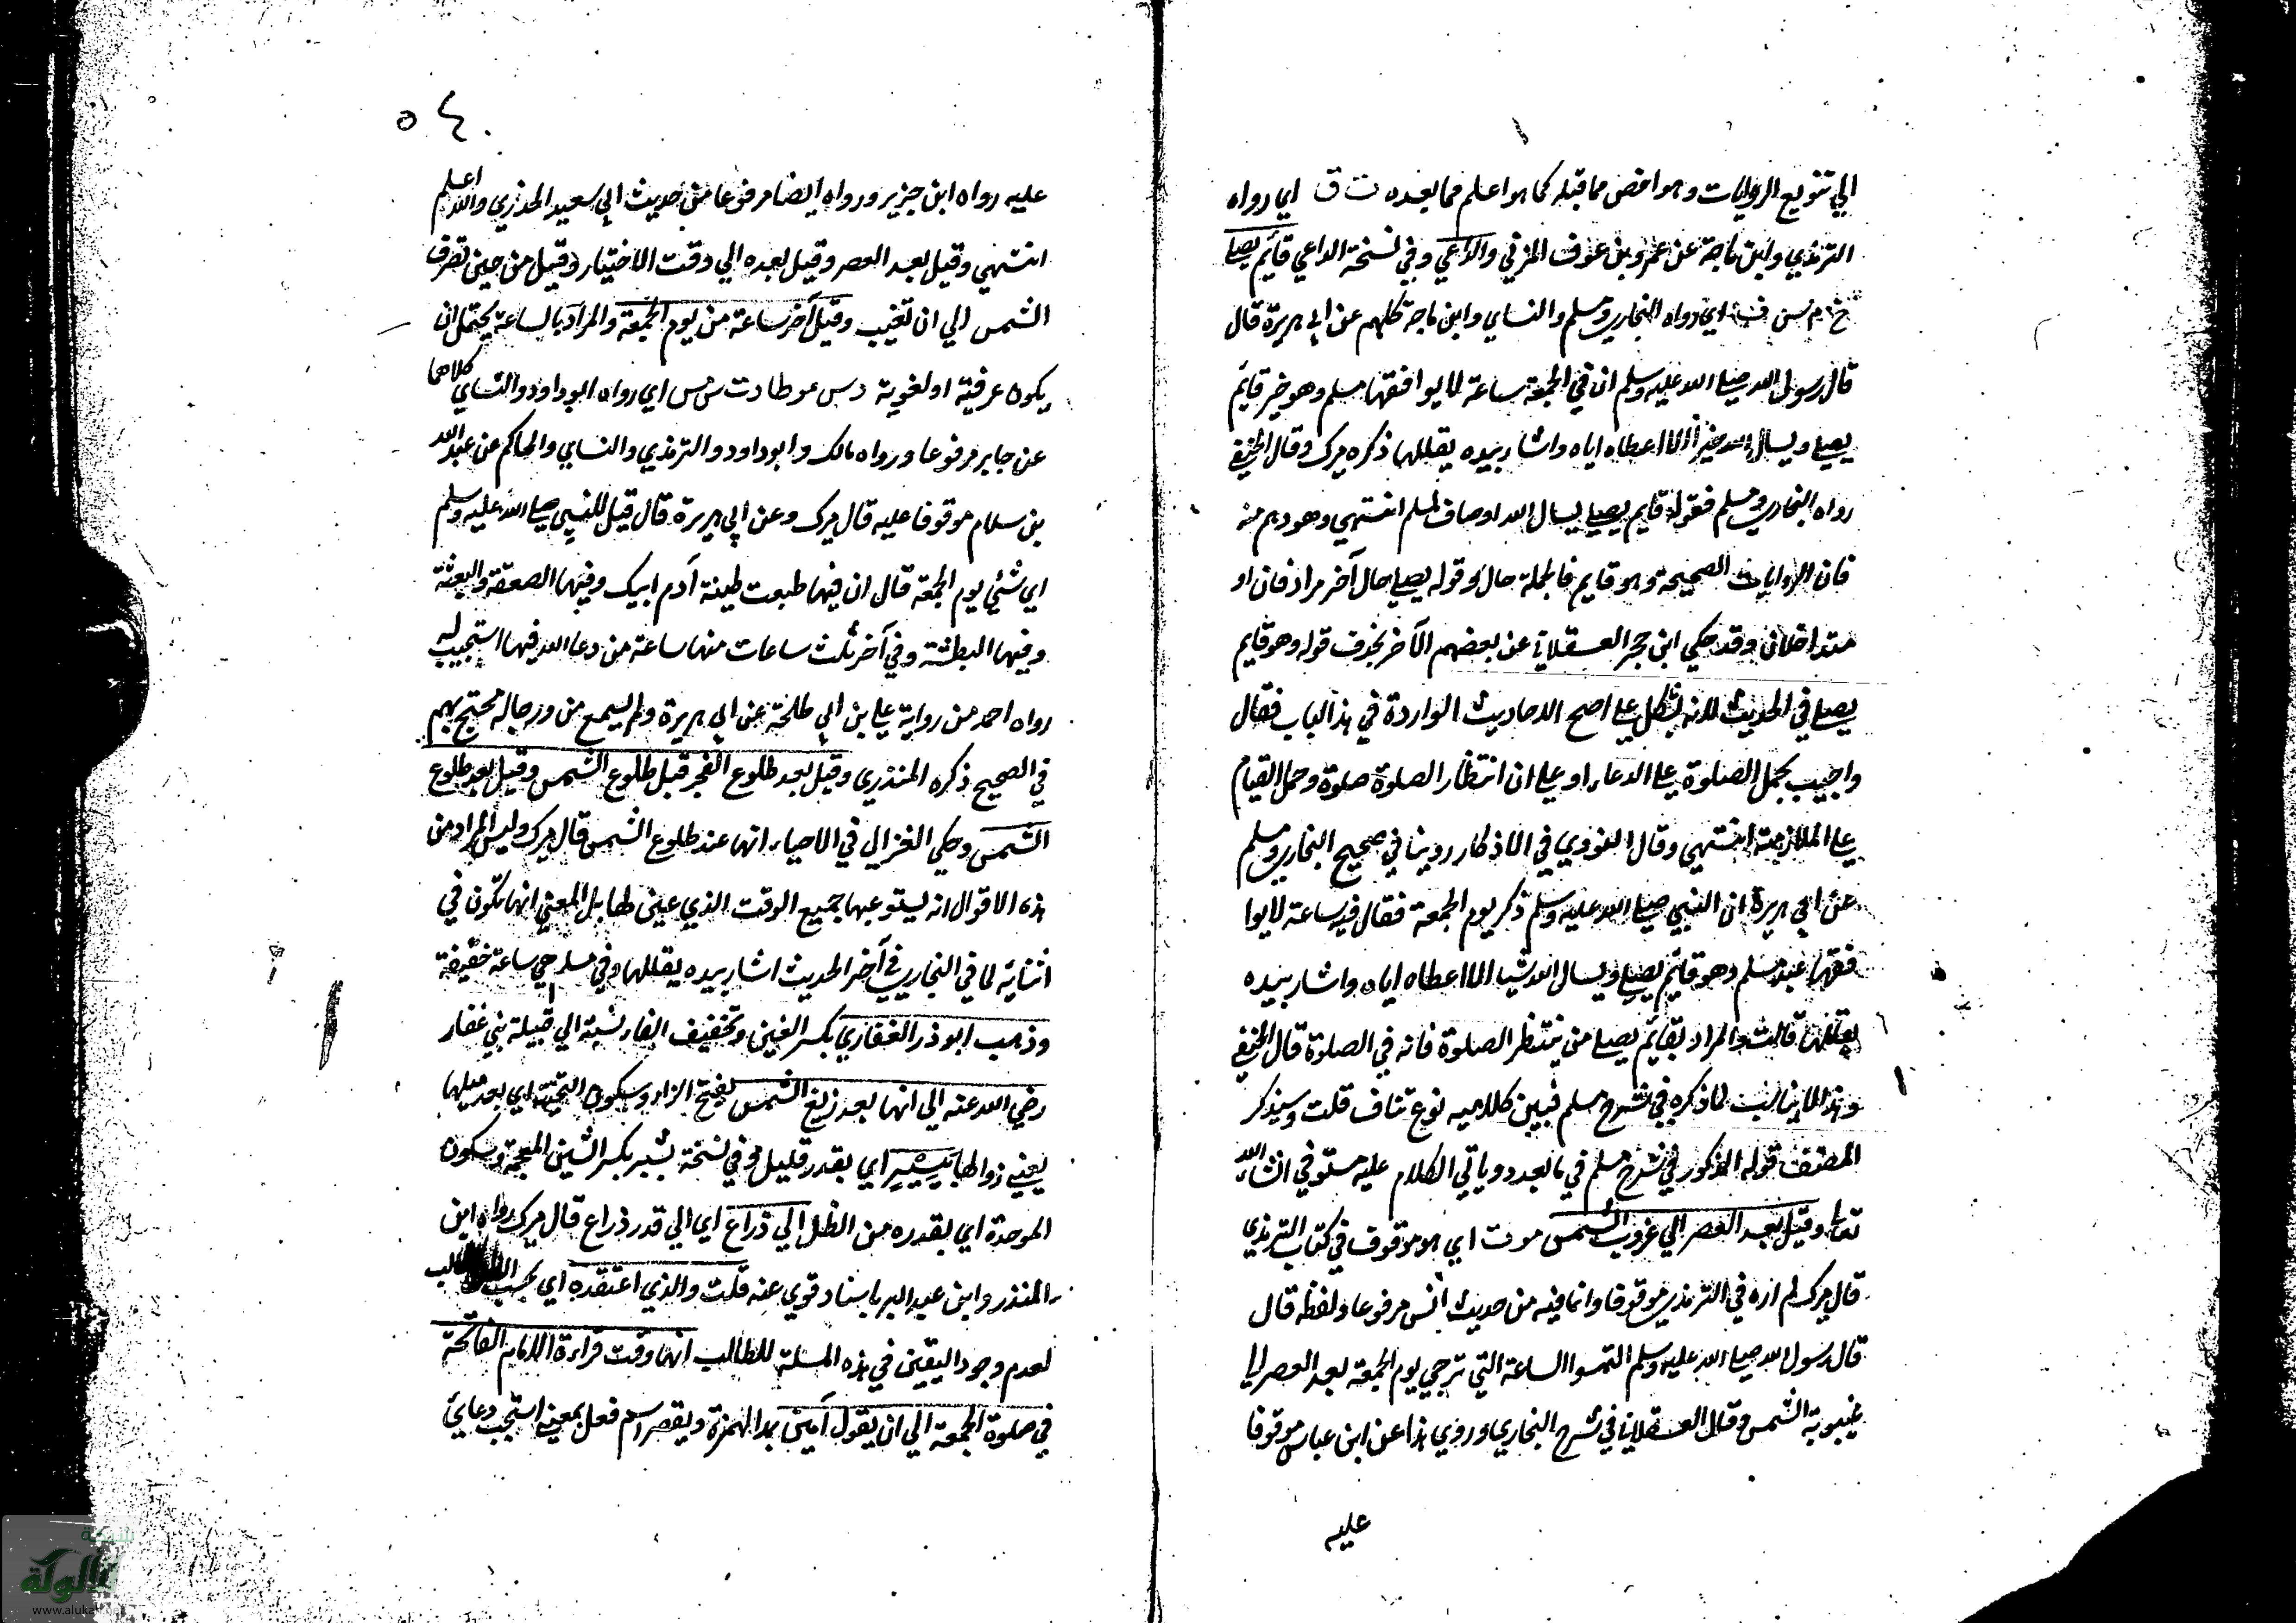 الي تنويع الروايات وهو اخص مما قبله كما هو اعلم مما بعده ت ق اي رواه
الترمذي وابن ماجة عن عمرو بن عوف المزني والداعي وفي نسخة الداعي قايم يصلي
خ م س ق اي رواه البخاري ومسلم والنساي وابن ماجة كلهم عن ابي هريرة قال
قال رسول الله صلي الله عليه وسلم ان في الجمعة ساعة لا يوافقها مسلم وهو قايم
يصلي ويسال الله خيرا الا اعطاه اياه واشار بيده يقللها ذكره ميرك وقال الحنفي
رواه البخاري ومسلم فقوله قايم يصلي يسال الله اوصاف لمسلم انتهي وهو وهم منه
فان الروايات الصحيحة وهو قايم فالجملة حال وقوله يصلي حال آخر مرادفان او
متداخلان وقد حكي ابن حجر العسقلاني عن بعضهم الآخر بحذف قوله وهو قايم
يصلي في الحديث لانه يشكل علي اصح الاحاديث الواردة في هذا الباب فقال
واجيب بحمل الصلوة علي الدعاء او علي ان انتظار الصلوة صلوة وحمل القيام
علي الملازمة انتهي وقال النووي في الاذكار روينا في صحيح البخاري ومسلم
عن ابي هريرة ان النبي صلي الله عليه وسلم ذكر يوم الجمعة فقال فيه ساعة لا يوا
فقها عبد مسلم وهو قايم يصلي ويسال الله شيا الا اعطاه اياه واشار بيده
يقللها قالت والمراد بقايم يصلي من ينتظر الصلوة فانه في الصلوة قال الحنفي
وهذا لا يناسب لما ذكره في شرح مسلم فبين كلاميه نوع تناف قلت وسيذكر
المصنف قوله المذكور في شرح مسلم في ما بعد وياتي الكلام عليه مستوفي ان شاء الله
تعالي وقيل بعد العصر الي غروب الشمس موت اي هو موقوف في كتاب الترمذي
قال ميرك لم اره في الترمذي موقوفا وانما فيه من حديث انس مرفوعا ولفظه قال
قال رسول الله صلي الله عليه وسلم التمسوا الساعة التي ترجي يوم الجمعة بعد العصر الي
غيبوبة الشمس وقال العسقلاني في شرح البخاري وروي هذا عن ابن عباس موقوفا
عليه
٥٤
عليه رواه ابن جرير ورواه ايضا مرفوعا من حديث ابي سعيد الخدري والله اعلم
انتهي وقيل بعد العصر وقيل بعده الي وقت الاختيار وقيل من حين تصرف
الشمس الي ان تغيب وقيل آخر ساعة من يوم الجمعة والمراد بالساعة يحتمل ان
يكون عرفية او لغوية د س مو طا د ت س مس اي رواه ابو داود والنساي كلاهما
عن جابر مرفوعا ورواه مالك وابو داود والترمذي والنساي والحاكم عن عبد الله
بن سلام موقوفا عليه قال ميرك وعن ابي هريرة قال قيل للنبي صلي الله عليه وسلم
اي شئي يوم الجمعة قال ان فيها طبعت طينة آدم ابيك وفيها الصعقة والبعثة
وفيها البطشة وفي آخر ثلث ساعات منها ساعة من دعا الله فيها استجيب له
رواه احمد من رواية علي بن ابي طلحة عن ابي هريرة ولم يسمع من ورجاله محتج بهم
في الصحيح ذكره المنذري وقيل بعد طلوع الفجر قبل طلوع الشمس وقيل بعد طلوع
الشمس وحكي الغزالي في الاحياء انها عند طلوع الشمس قال ميرك وليس المراد من
هذه الاقوال انه يستوعبها جميع الوقت الذي عين لها بل المعني انها تكون في
اثنايه لما في البخاري في آخر الحديث اشار بيده يقللها وفي مسلم هي ساعة خفيفة
وذهب ابو ذر الغفاري بكسر الغين وتخفيف الفاء نسبة الي قبيلة بني غفار
رضي الله عنه الي انها بعد زيغ الشمس بفتح الزاء وسكون التحتية اي بعد ميلها
يعني زوالها بيسير اي بقدر قليل وفي نسخة بشبر بكسر الشين المعجمة وسكون
الموحدة اي بقدره من الظل الي ذراع اي الي قدر ذراع قال ميرك رواه ابن
المنذر وابن عبد البر باسناد قوي عنه قلت والذي اعتقده اي بحسب الظن الغالب
لعدم وجود اليقين في هذه المسلة للطالب انها وقت قراءة الامام الفاتحة
في صلوة الجمعة الي ان يقول آمين بمد الهمزة ويقصر اسم فعل بمعني استجب دعاي